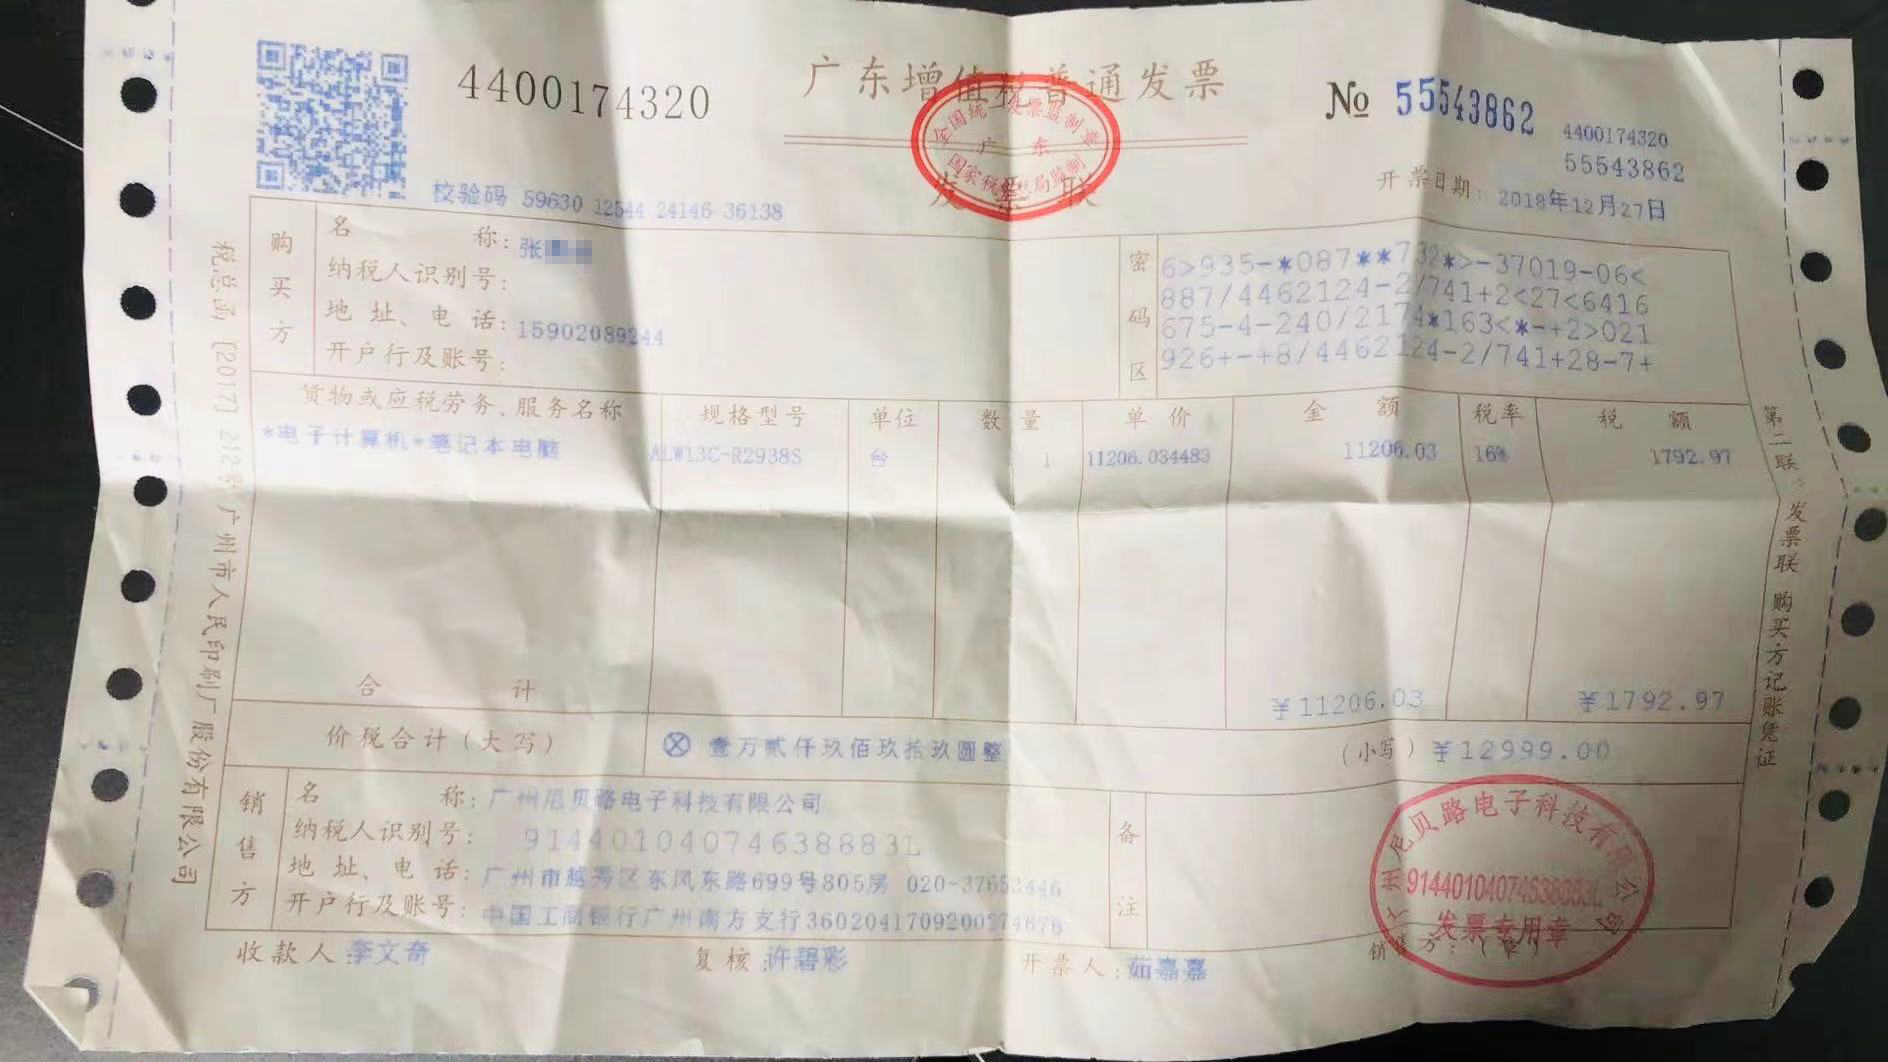 4400174320
广东增值税普通发票
№ 55543862
4400174320
55543862
全国统一发票监制章
广东
国家税务总局监制
发票联
校验码 59630 12544 24146 36138
开票日期: 2018年12月27日
购买方
名称: 张
纳税人识别号:
地址、电话: 15902089244
开户行及账号:
密码区
6>935-*087**732*>-37019-06<
887/4462124-2/741+2<27<6416
675-4-240/2174*163<*-+2>021
926+-+8/4462124-2/741+28-7+
货物或应税劳务、服务名称 规格型号 单位 数量 单价 金额 税率 税额
*电子计算机*笔记本电脑 ALW13C-R2938S 台 1 11206.034483 11206.03 16% 1792.97
合计 ¥11206.03 ¥1792.97
价税合计(大写) ⊗ 壹万贰仟玖佰玖拾玖圆整 (小写) ¥12999.00
销售方
名称: 广州尼贝路电子科技有限公司
纳税人识别号: 91440104074638883L
地址、电话: 广州市越秀区东风东路699号805房 020-37653446
开户行及账号: 中国工商银行广州南方支行3602041709200274676
备注
广州尼贝路电子科技有限公司
91440104074638883L
发票专用章
收款人: 李文奇 复核: 许碧彩 开票人: 茹嘉嘉 销售方:(章)
税总函〔2017〕212号广州市人民印刷厂股份有限公司
第二联:发票联 购买方记账凭证